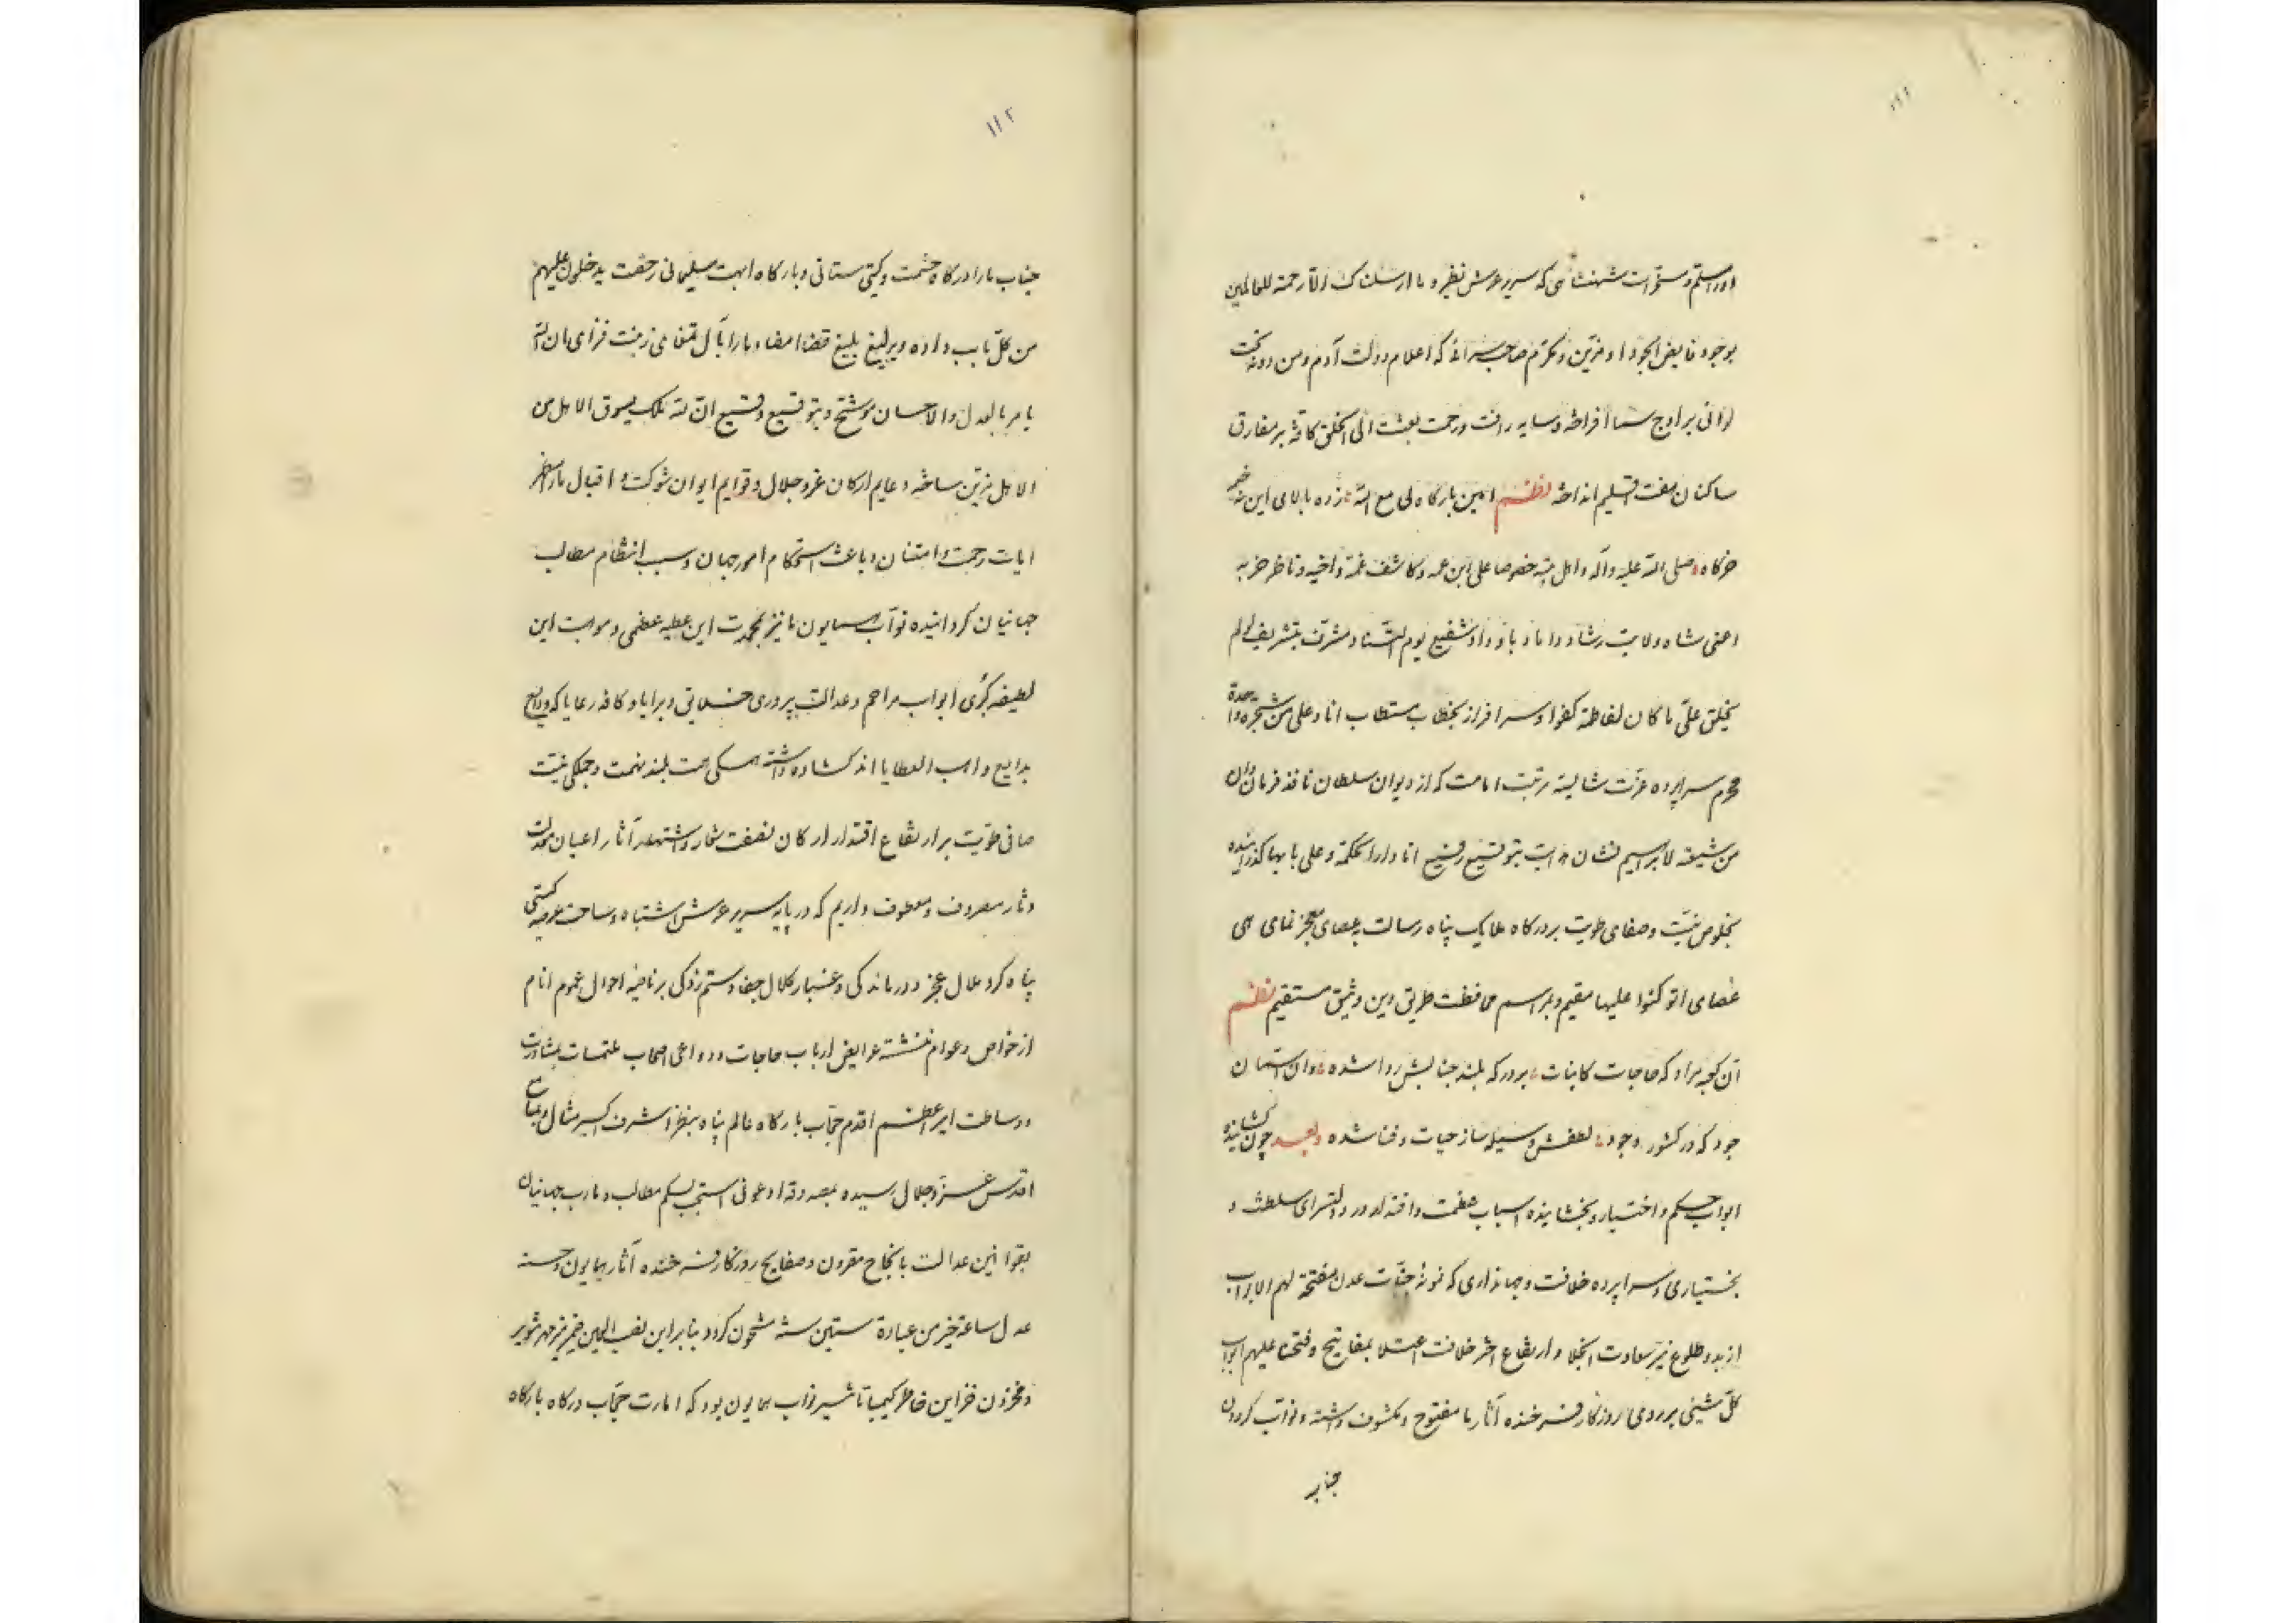 ۱۱۱
او را مسلم و مسوات شهنشاهی که سریر عرش نظیر و ما ارسلناک الا رحمة للعالمین
بوجود فایض الجود او مزین و مکرم صاحب سرائی که اعلام دولت آدم و من دونه تحت
لوائی بر اوج سما افراخته و سایه رافت و رحمت بعثت الی الخلق کافة بر مفارق
ساکنان هفت اقلیم انداخته نظم امین بارگاه لی مع الله زده بالای این نه
خرگاه صلی الله علیه وآله و اهل بیته خصوصا علی ابن عمه و کاشف غمه و اخیه و ناظر حزبه
اعنی شاه ولایت رشاد و داماد باو داد و شفیع یوم التناد مشرف بتشریف لولم
یخلق علی ما کان لفاطمة کفوا و سرافراز بخطاب مستطاب انا و علی من شجرة واحدة
محرم سراپرده عزت شایسته رتبت امامت که از دیوان سلطان نافذ فرمان وان
من شیعته لابراهیم نشان هدایت بتوقیع رفیع انا دار الحکمة و علی بابها گذرانیده
بخلوص نیت و صفای طویت بر درگاه ملایک پناه رسالت بعصای معجز نمای هی
عصای اتوکئوا علیها مقیم و بمراسم محافظت طریق دین وثیق مستقیم نظم
آن کعبه مراد که حاجات کاینات بر درکه بلند جنابش روا شده وان آستان
جود که در کشور وجود لطفش وسیله ساز حیات و فنا شده و بعد چون گشاینده
ابواب حکم و اختیار و بخشاینده اسباب عظمت و اقتدار در دولتسرای سلطنت و
بختیاری و سراپرده خلافت و جهانداری که نمونۀ جنات عدن مفتحة لهم الابواب
از بدو طلوع نیر سعادت انجلا و ارتفاع اختر خلافت اعتلا بمفاتیح و فتحنا علیهم ابواب
کل شیئی بر روی روزگار فرخنده آثار ما مفتوح و مکشوف داشته و نواب گردون
جناب
۱۱۲
جناب ما را درگاه حشمت و گیتی ستانی و بارگاه ابهت سلیمانی رحقت یدخلون علیهم
من کل باب داده و یرلیغ بلیغ قضا امضاء ما را بآل تمغای زینت فزای ان الله
یامر بالعدل والاحسان موشح و بتوقیع وقیع ان لله ملک یسوق الاهل من
الاهل مزین ساخته دعایم ارکان عز و جلال و قوایم ایوان شوکت و اقبال ما را مظهر
ایات رحمت و امتنان و باعث استحکام امور جهان و سبب انتظام مطالب
جهانیان گردانیده نواب همایون ما نیز بمحمدت این عطیه عظمی و موهبت این
لطیفه کبری ابواب مراحم و عدالت پروری خلایق و برایا و کافه رعایا که ودایع
بدایع واهب العطایا اند گشاده داشته همگی همت بلند نهمت و جملگی نیت
صافی طویت بر ارتفاع اقتدار ارکان نصفت شعار و اشتهار آثار اعیان معدلت
دثار مصروف و معطوف داریم که در پایه سریر عرش اشتباه و ساحت عرصه گیتی
پناه گرد ملال عجز و درماندگی و غبار کلال جفا و ستم زدگی بر ناصیه احوال عموم انام
از خواص و عوام ننشسته عرایض ارباب حاجات و دواعی اصحاب ملتمسات بمشاورت
و وساطت امیر اعظم اقدم حجاب بارگاه عالم پناه بنظر اشرف اکسیر مثال و مسامع
اقدس عز و جلال رسیده بمصدوقه ادعونی استجب لکم مطالب و مارب جهانیان
بقوانین عدالت بانجاح مقرون و صفایح روزگار فرخنده آثار همایون وحسنه
عدل ساعة خیر من عبادة ستین سنة مشحون گردد بنابر این نصب العین ضمیر منیر مهر تنویر
و مخزون خزاین خاطر کیمیا تاثیر نواب همایون بود که امارت حجاب درگاه بارگاه